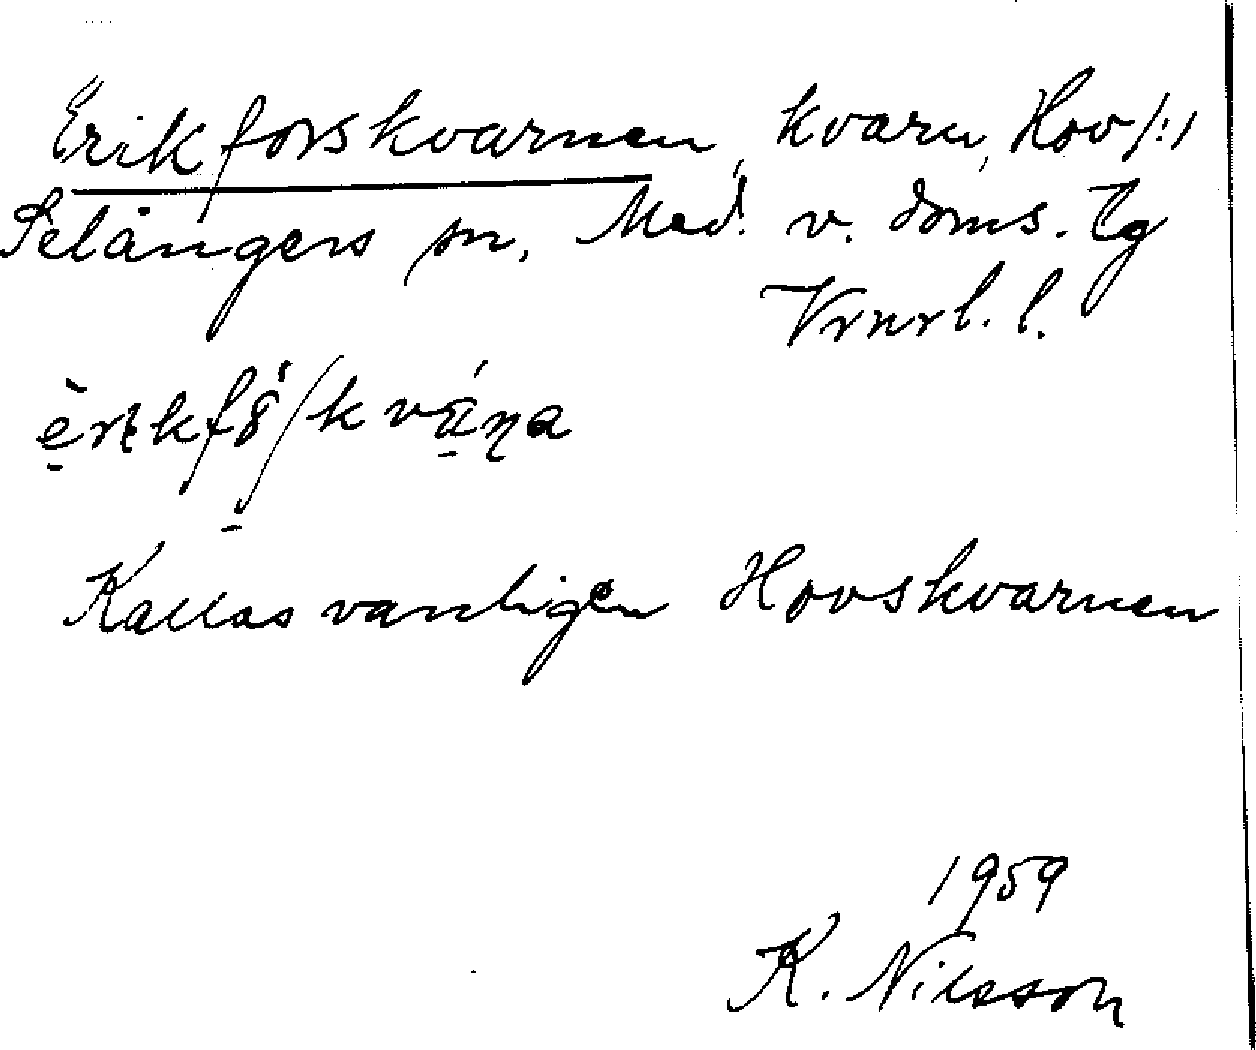 Erikforskvarnen, kvarn, Hov 1:1
Selångers sn, Med. v. doms. Tg
Vrnrl. l.
Kallas vanligen Hovskvarnen
1959
K. Nilsson